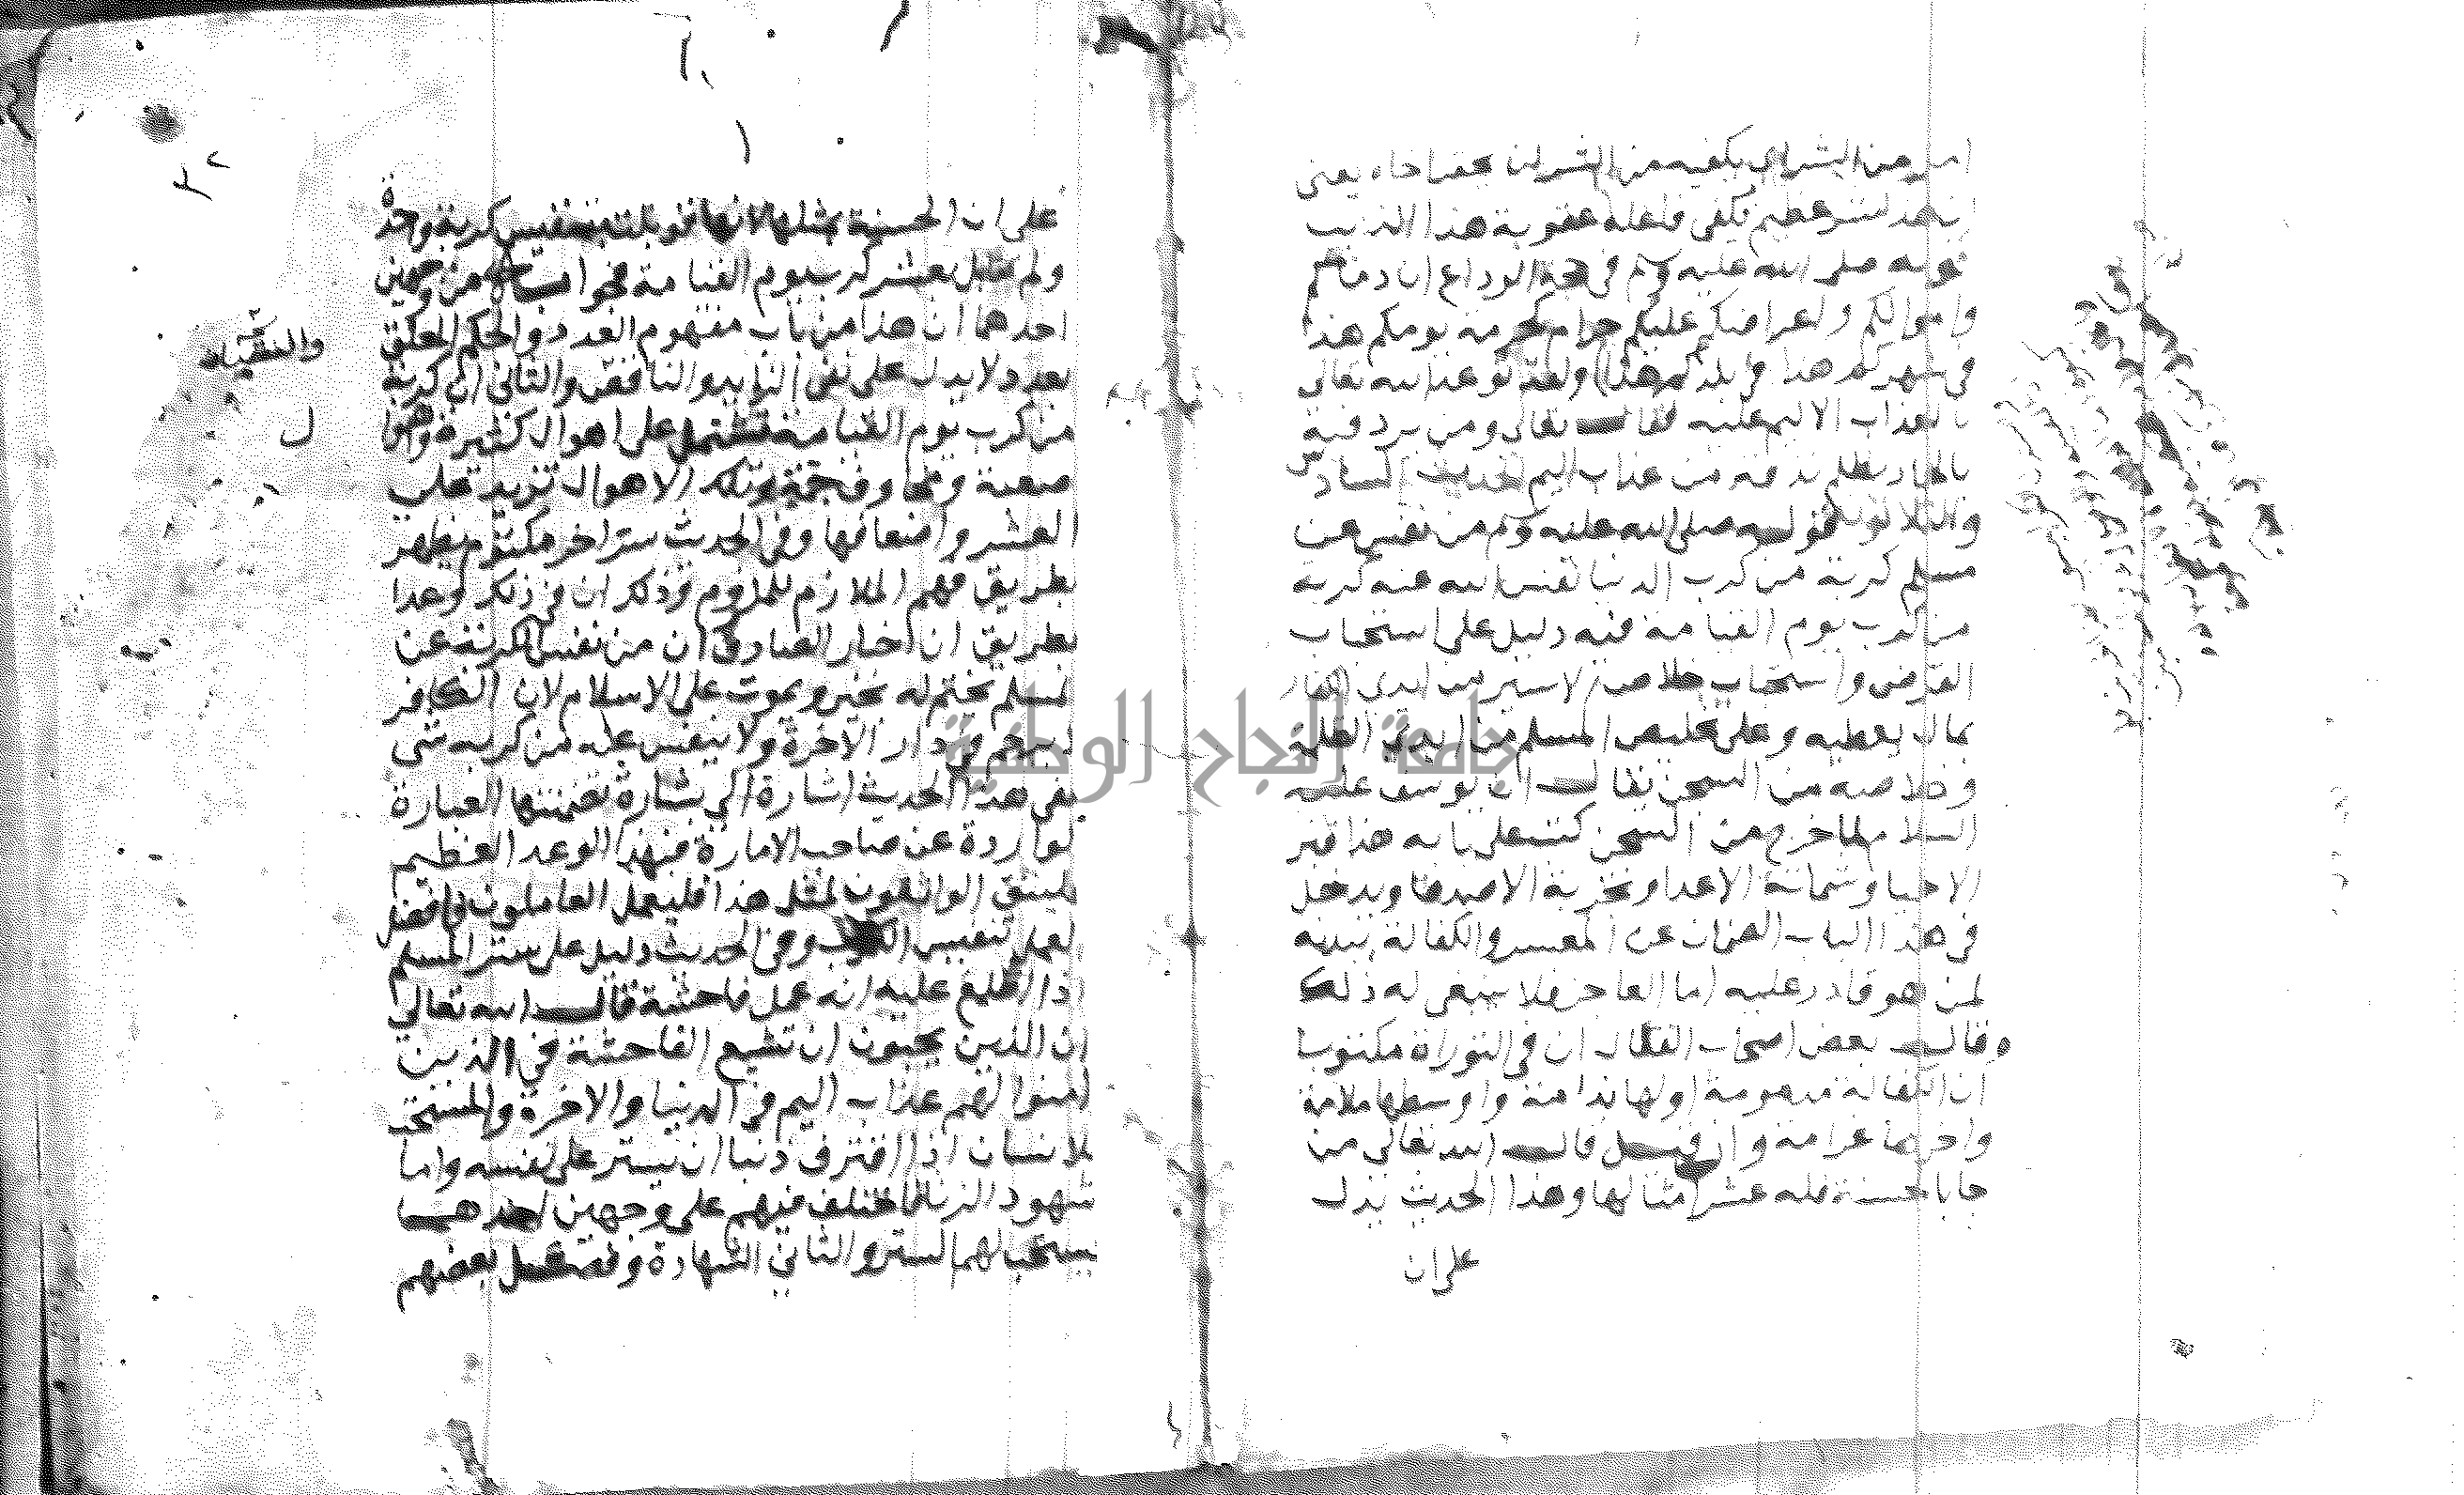 امرء من الشر اي يكفيه من الشر ان يحقر اخاه يعني
ان هذا شر عظيم يكفي فاعله عقوبة هذا الذنب
قوله صلى الله عليه وسلم في حجة الوداع ان دماكم
واموالكم واعراضكم عليكم حرام كحرمة يومكم هذا
في شهركم هذا في بلدكم هذا ولقد توعد الله تعالى
بالعذاب الاليم عليه فقال تعالى ومن يرد فيه
بالحاد بظلم نذقه من عذاب اليم الحديث السادس
والثلاثون قوله صلى الله عليه وسلم من نفس عن
مسلم كربة من كرب الدنيا نفس الله عنه كربة
من كرب يوم القيامة فيه دليل على استحباب
القرض واستحباب خلاص الاسير من ايدي الكفار
بمال يعطيه وعلى تخليص المسلم من ايدي الظلمة
وخلاصه من السجن يقال ان يوسف عليه
السلام لما خرج من السجن كتب على بابه هذا قبر
الاحيا وشماتة الاعدا وتجربة الاصدقا ويدخل
في هذا الباب الضمان عن المعسر والكفالة ببدنه
لمن هو قادر عليه اما العاجز فلا ينبغي له ذلك
وقال بعض اصحاب القفال ان في التوراة مكتوبا
ان الكفالة مذمومة اولها ندامة واوسطها ملامة
واخرها غرامة وان قيل قال الله تعالى من
جا بالحسنة فله عشر امثالها وهذا الحديث يدل
على ان
على ان الحسنة بمثلها لانها قوبلت بتنفيس كربة واحدة
ولم تقابل بعشر كرب يوم القيامة فجوابه من وجهين
احدهما ان هذا من باب مفهوم العدد والحكم المعلق
بعدد لا يدل على نفي الزايد والناقص والثاني ان كربة
من كرب يوم القيامة تشتمل على اهوال كثيرة واحوال
صعبة ومخاوف جمة وتلك الاهوال تزيد على
العشر واضعافها وفي الحديث سر اخر مكتوم يظهر
بطريق فهم اللازم للملزوم وذلك ان في ذلك وعدا
بطريق ان اخبار الصادق ان من نفس الكربة عن
المسلم يختم له بخير ويموت على الاسلام لان الكافر
لا يرحم في دار الاخرة ولا ينفس عنه من كربه شي
ففي هذا الحديث اشارة الى بشارة تضمنتها العبارة
الواردة عن صاحب الامارة فبهذا الوعد العظيم
فليثق الواثقون لمثل هذا فليعمل العاملون وافضل
العمل تنفيس الكرب وفي الحديث دليل على ستر المسلم
اذا اطلع عليه انه عمل فاحشة قال الله تعالى
ان الذين يحبون ان تشيع الفاحشة في الذين
امنوا لهم عذاب اليم في الدنيا والاخرة والمستحب
للانسان اذا اقترف ذنبا ان يستر على نفسه واما
شهود الزنا فاختلف فيهم على وجهين احدهما
يستحب لهم الستر والثاني الشهادة وفصل بعضهم